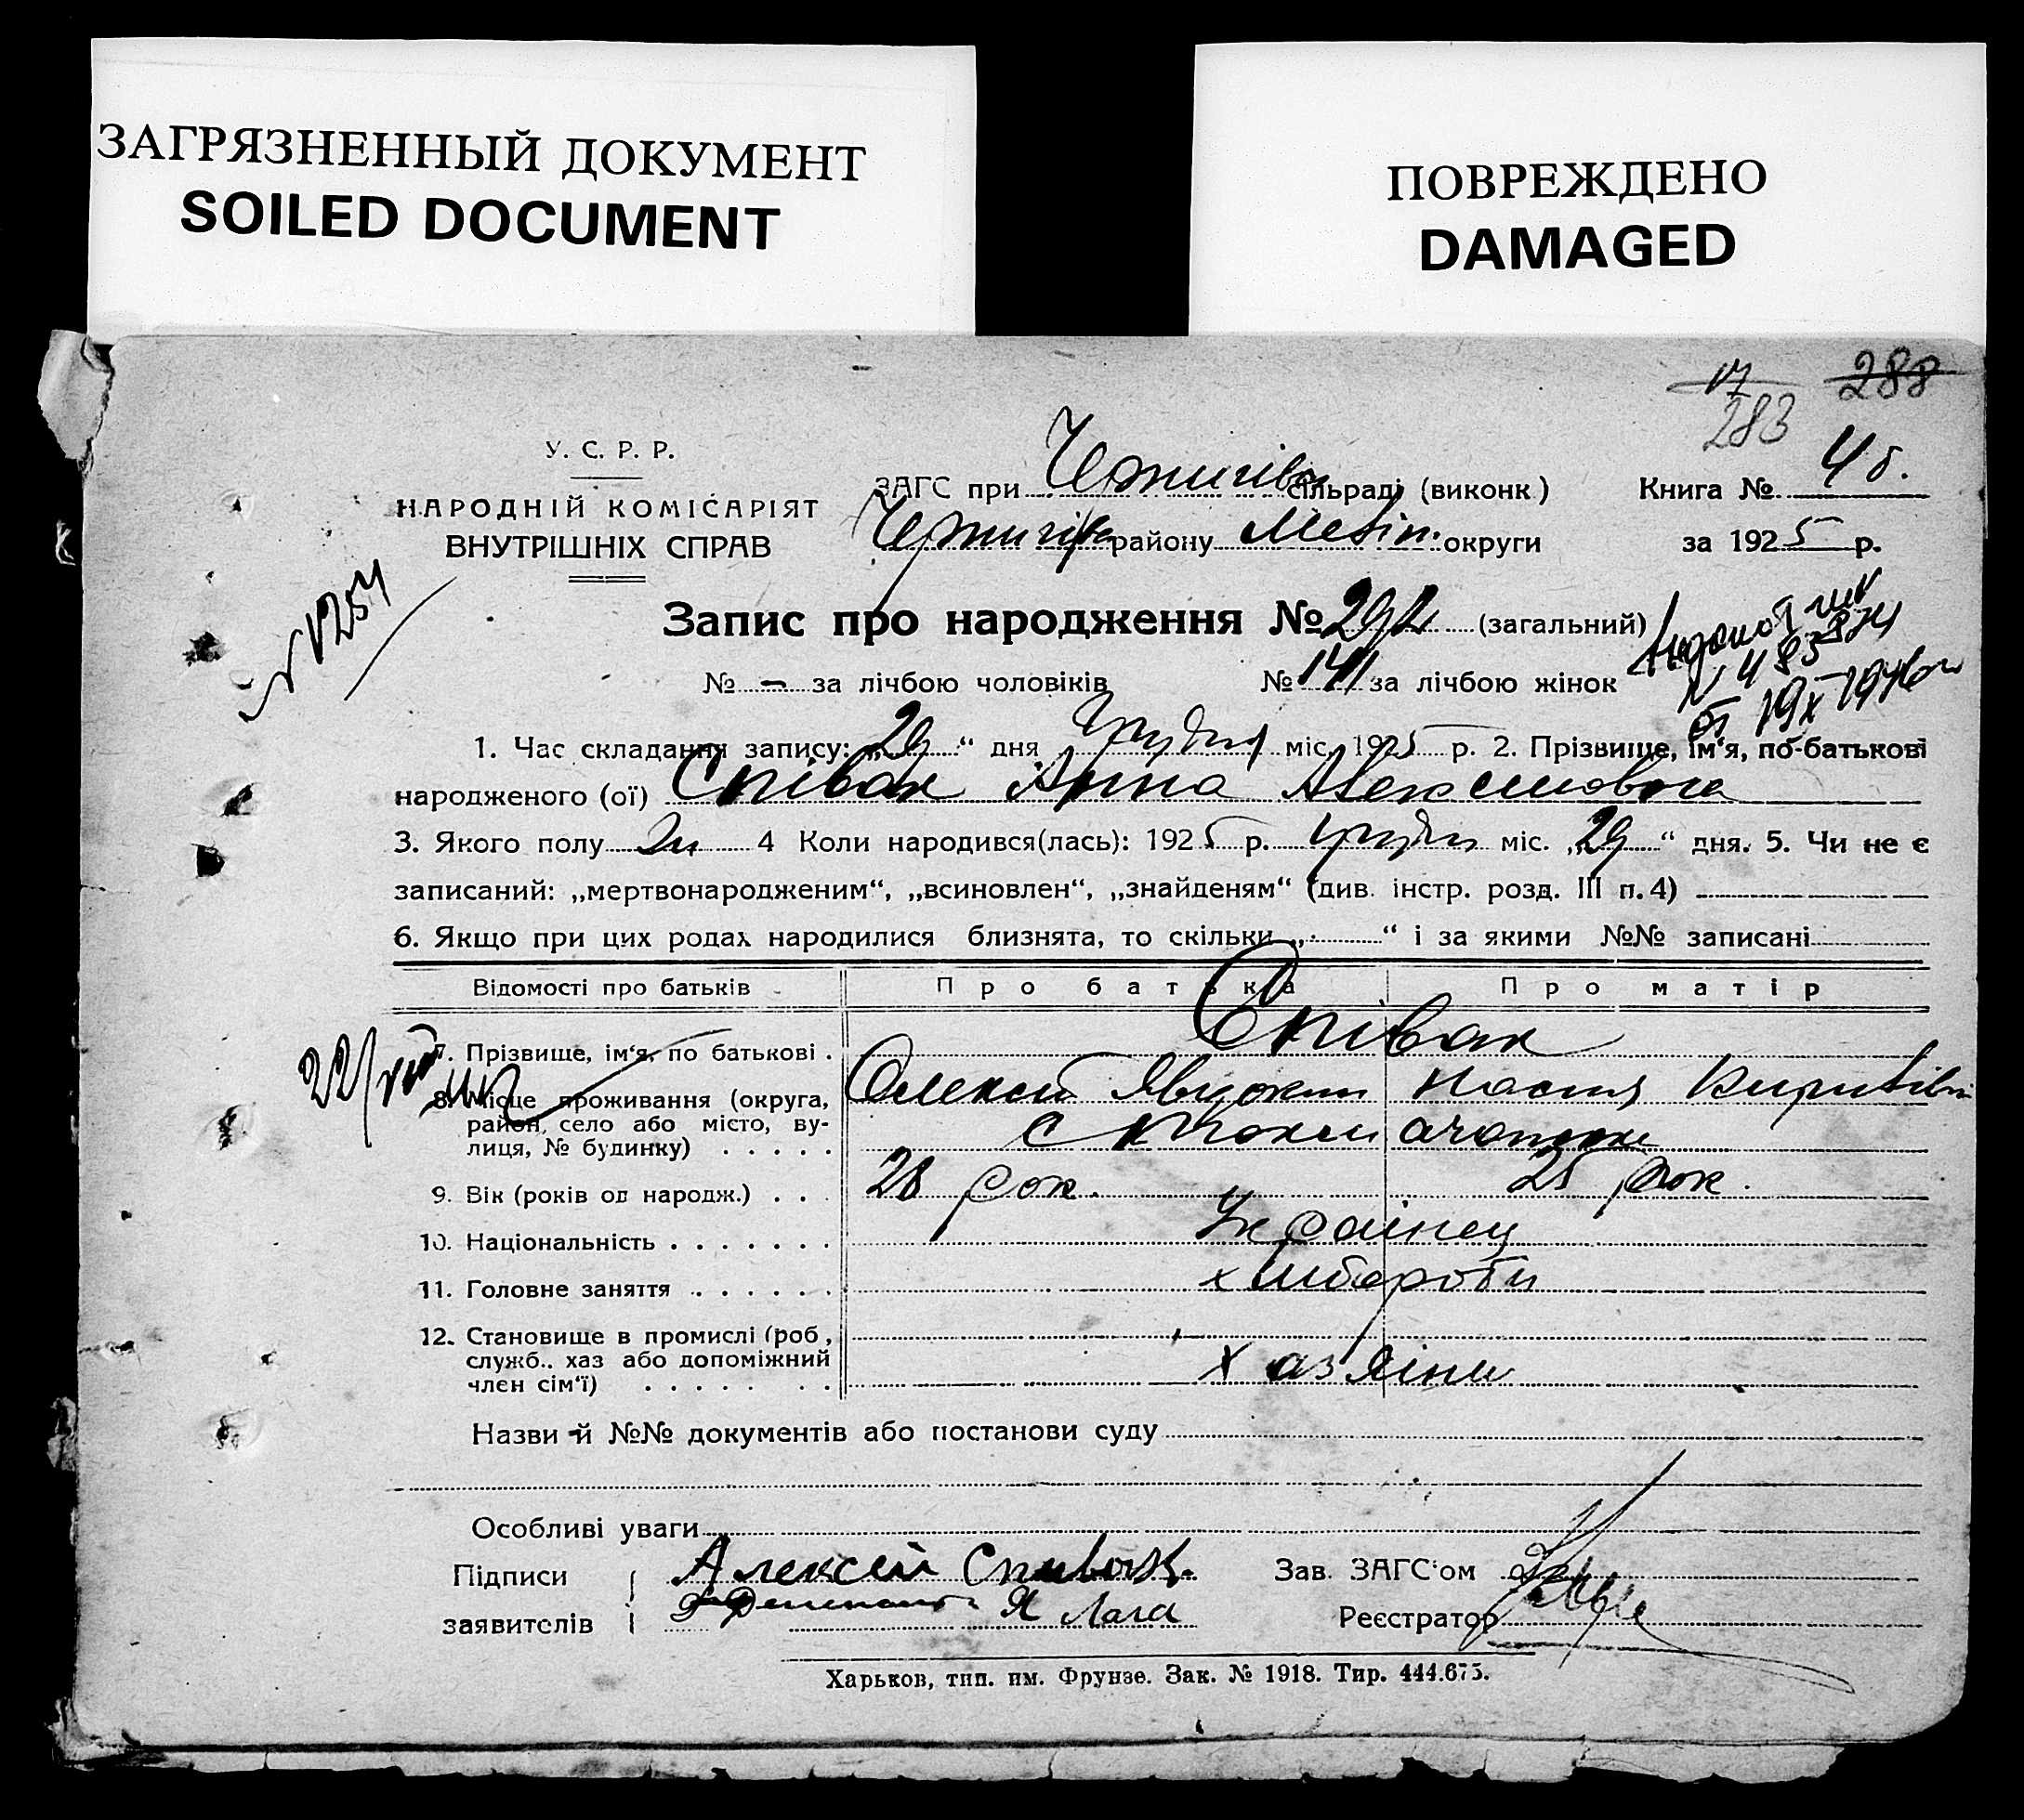 ЗАГРЯЗНЕННЫЙ ДОКУМЕНТ
SOILED DOCUMENT
ПОВРЕЖДЕНО
DAMAGED
17 288
283
У. С. Р. Р.
НАРОДНІЙ КОМІСАРІЯТ
ВНУТРІШНІХ СПРАВ
ЗАГС при Чернигівс сільраді (виконк.) Книга № 4б.
Чернигівс району Меліт. округи за 1925 р.
№ 1254
Запис про народження № 292 (загальний)
№ - за лічбою чоловіків № 141 за лічбою жінок
от 19 X 1946
1. Час складання запису: „29“ дня Грудня міс. 1925 р. 2. Прізвище, ім‘я, по-батькові
народженого (ої) Співак Анна Алексеиовна
3. Якого полу Жи 4 Коли народився(лась): 1925 р. грудня міс. „29“ дня. 5. Чи не є
записаний: „мертвонародженим“, „всиновлен“, „знайденям“ (див. інстр. розд. III п. 4)
6. Якщо при цих родах народилися близнята, то скільки „ “ і за якими №№ записані
Відомості про батьків Про батька Про матір
7. Прізвище, ім‘я, по батькові . Співак
22/VIII
8. Місце проживання (округа, Олексій Настя
район, село або місто, ву-
лиця, № будинку) . . . . . с
9. Вік (років од народж.) . . . 28 рок. 25 рок.
10. Національність . . . . . . . Українец
11. Головне заняття . . . . . . хліборобы
12. Становище в промислі (роб,
служб.. хаз або допоміжний
член сім‘ї) . . . . . . . Хазяіни
Назви й №№ документів або постанови суду
Особливі уваги
Підписи Алексей Спивак. Зав. ЗАГС‘ом
заявителів Реєстратор
Харьков, тип. им. Фрунзе. Зак. № 1918. Тир. 444.675.